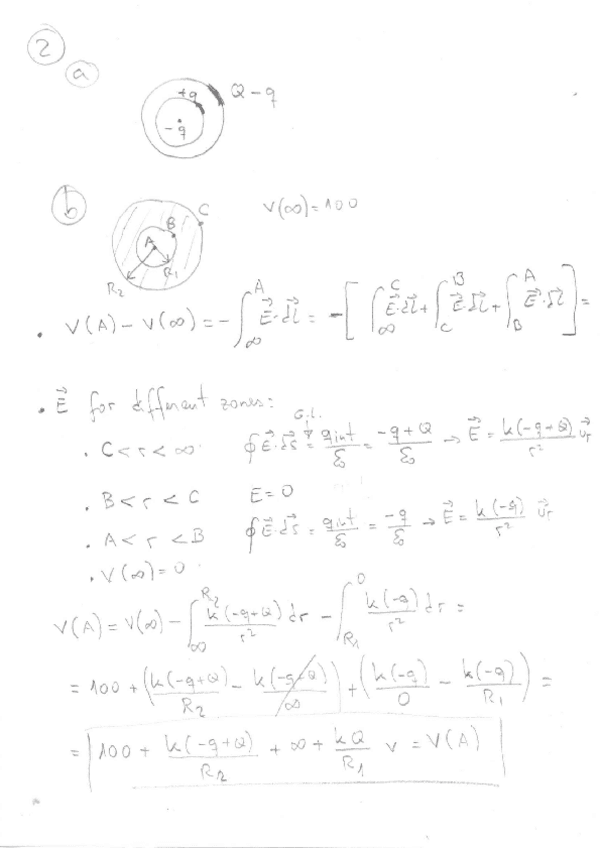 2
a
+q Q-q
-q
b
V(∞)=100
C
B
A
R₁
R₂
• V(A) - V(∞) = -∫_∞^A E⃗·dl⃗ = -[∫_∞^C E⃗·dl⃗ + ∫_C^B E⃗·dl⃗ + ∫_B^A E⃗·dl⃗] =
• E⃗ for different zones:
G.L.
• C<r<∞ ∮E⃗·ds⃗ = qint/ε₀ = (-q+Q)/ε₀ → E⃗ = k(-q+Q)/r² u⃗r
• B<r<C E=0
• A<r<B ∮E⃗·ds⃗ = qint/ε₀ = -q/ε₀ → E⃗ = k(-q)/r² u⃗r
• V(∞)=0
V(A) = V(∞) - ∫_∞^R₂ k(-q+Q)/r² dr - ∫_R₁^0 k(-q)/r² dr =
= 100 + (k(-q+Q)/R₂ - k(-q-Q)/∞) + (k(-q)/0 - k(-q)/R₁) =
= 100 + k(-q+Q)/R₂ + ∞ + kQ/R₁ V = V(A)